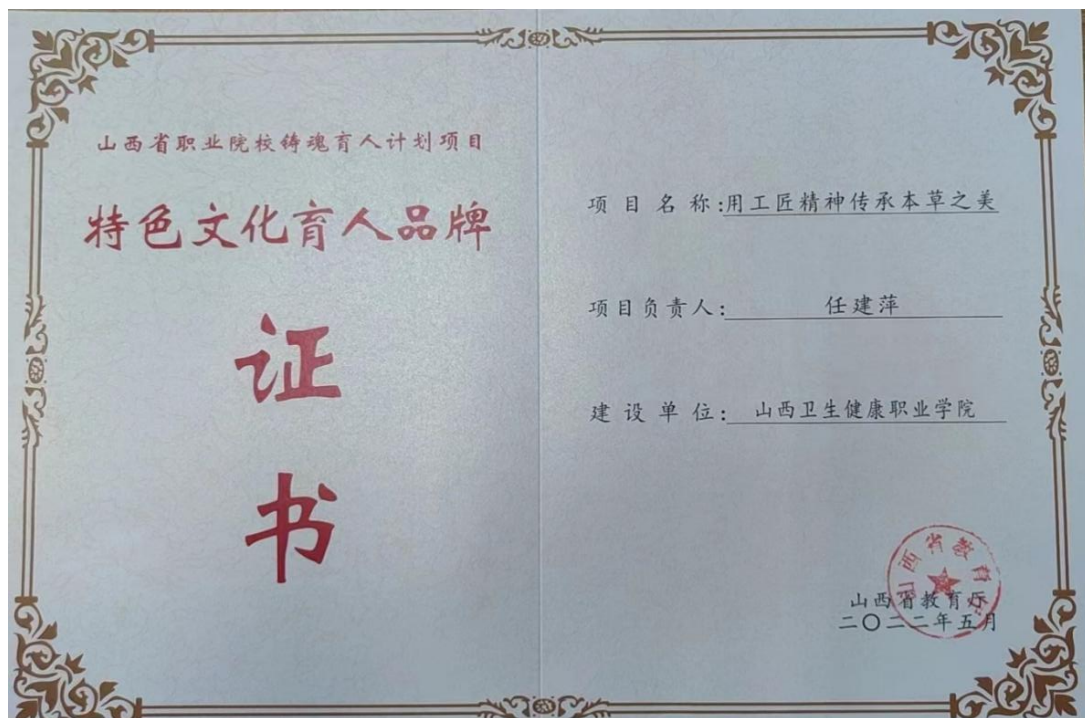 山西省职业院校铸魂育人计划项目
特色文化育人品牌
证
书
项目名称:用工匠精神传承本草之美
项目负责人:任建萍
建设单位:山西卫生健康职业学院
山西省教育厅
山西省教育厅
二〇二二年五月